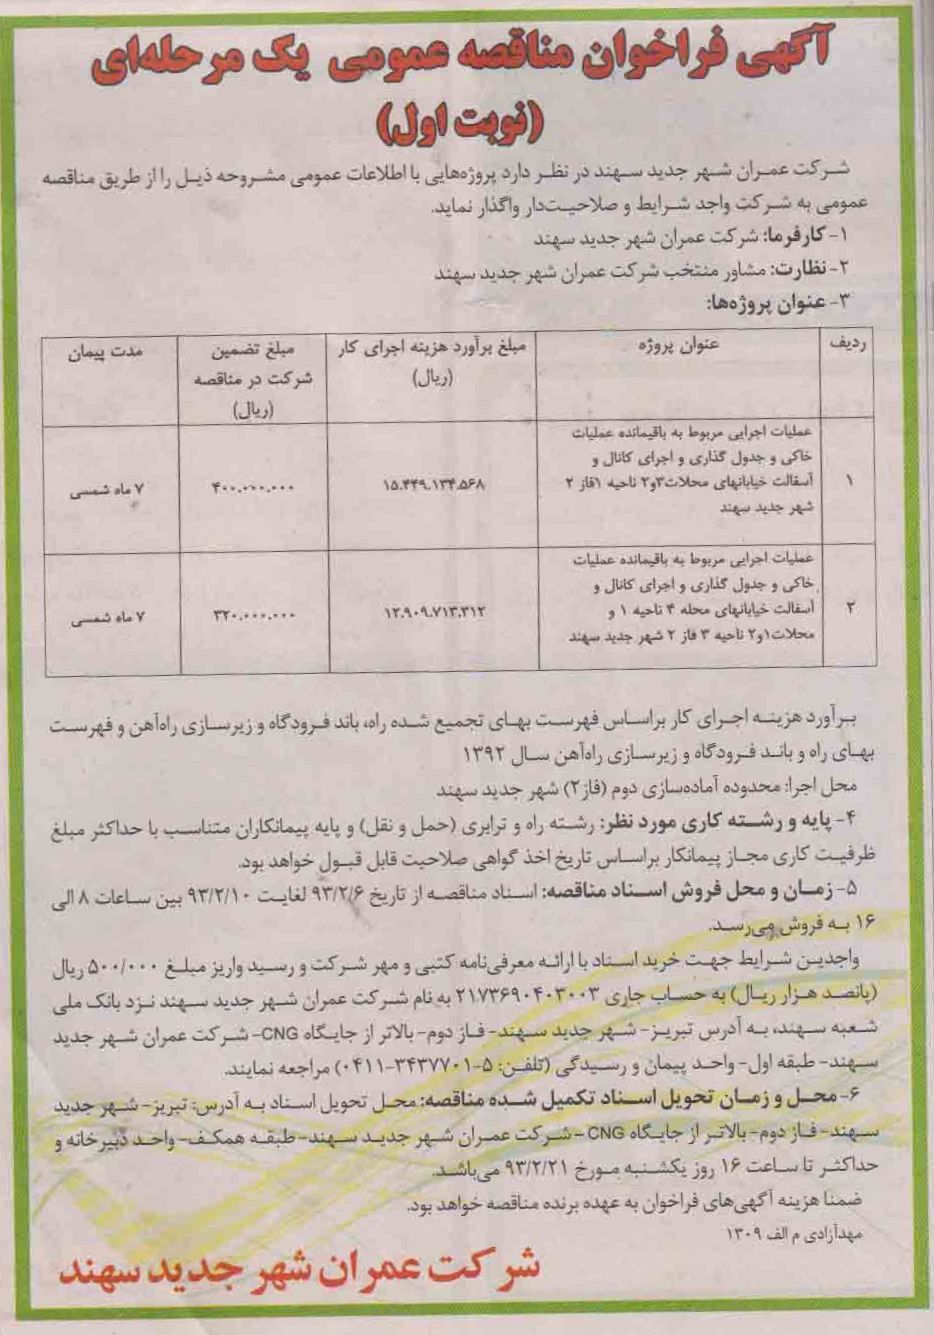 آگهی فراخوان مناقصه عمومی یک مرحله‌ای
(نوبت اول)
شرکت عمران شهر جدید سهند در نظر دارد پروژه‌هایی با اطلاعات عمومی مشروحه ذیل را از طریق مناقصه
عمومی به شرکت واجد شرایط و صلاحیت‌دار واگذار نماید.
۱- کارفرما: شرکت عمران شهر جدید سهند
۲- نظارت: مشاور منتخب شرکت عمران شهر جدید سهند
۳- عنوان پروژه‌ها:
ردیف عنوان پروژه مبلغ برآورد هزینه اجرای کار مبلغ تضمین مدت پیمان
(ریال) شرکت در مناقصه
(ریال)
عملیات اجرایی مربوط به باقیمانده عملیات
خاکی و جدول گذاری و اجرای کانال و
۱ آسفالت خیابانهای محلات۳و۲ ناحیه ۱فاز ۲ ۱۵.۴۴۹.۱۳۴.۵۶۸ ۴۰۰.۰۰۰.۰۰۰ ۷ ماه شمسی
شهر جدید سهند
عملیات اجرایی مربوط به باقیمانده عملیات
خاکی و جدول گذاری و اجرای کانال و
۲ آسفالت خیابانهای محله ۴ ناحیه ۱ و ۱۲.۹۰۹.۷۱۳.۳۱۲ ۳۲۰.۰۰۰.۰۰۰ ۷ ماه شمسی
محلات۱و۲ ناحیه ۳ فاز ۲ شهر جدید سهند
برآورد هزینه اجرای کار براساس فهرست بهای تجمیع شده راه، باند فرودگاه و زیرسازی راه‌آهن و فهرست
بهای راه و باند فرودگاه و زیرسازی راه‌آهن سال ۱۳۹۲
محل اجرا: محدوده آماده‌سازی دوم (فاز۲) شهر جدید سهند
۴- پایه و رشته کاری مورد نظر: رشته راه و ترابری (حمل و نقل) و پایه پیمانکاران متناسب با حداکثر مبلغ
ظرفیت کاری مجاز پیمانکار براساس تاریخ اخذ گواهی صلاحیت قابل قبول خواهد بود.
۵- زمان و محل فروش اسناد مناقصه: اسناد مناقصه از تاریخ ۹۳/۲/۶ لغایت ۹۳/۲/۱۰ بین ساعات ۸ الی
۱۶ به فروش می‌رسد.
واجدین شرایط جهت خرید اسناد با ارائه معرفی‌نامه کتبی و مهر شرکت و رسید واریز مبلغ ۵۰۰/۰۰۰ ریال
(پانصد هزار ریال) به حساب جاری ۲۱۷۳۶۹۰۴۰۳۰۰۳ به نام شرکت عمران شهر جدید سهند نزد بانک ملی
شعبه سهند، به آدرس تبریز- شهر جدید سهند- فاز دوم- بالاتر از جایگاه CNG- شرکت عمران شهر جدید
سهند- طبقه اول- واحد پیمان و رسیدگی (تلفن: ۵-۳۴۳۷۷۰۱-۰۴۱۱) مراجعه نمایند.
۶- محل و زمان تحویل اسناد تکمیل شده مناقصه: محل تحویل اسناد به آدرس: تبریز- شهر جدید
سهند- فاز دوم- بالاتر از جایگاه CNG -شرکت عمران شهر جدید سهند- طبقه همکف- واحد دبیرخانه و
حداکثر تا ساعت ۱۶ روز یکشنبه مورخ ۹۳/۲/۲۱ می‌باشد.
ضمنا هزینه آگهی‌های فراخوان به عهده برنده مناقصه خواهد بود.
مهدآزادی م الف ۱۳۰۹
شرکت عمران شهر جدید سهند